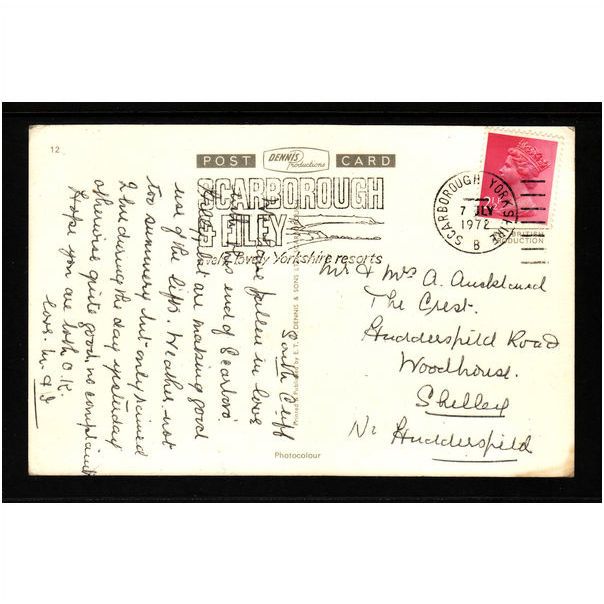 12
POST DENNIS Productions CARD
SCARBOROUGH
+ FILEY
lovely Yorkshire resorts
SCARBOROUGH YORKSHIRE
7 JLY
1972
B
BRITISH
PRODUCTION
South Cliff
have fallen in love
with this end of Scarboro'
Hills & flat are making good
use of the lifts. Weather not
too summery but only rained
2 hrs during the day yesterday
otherwise quite good, no complaints
Hope you are both O.K.
love. M & J
Mr & Mrs A.
The Crest.
Huddersfield Road
Woodhouse.
Shelley
Nr Huddersfield
Printed & Published by E. T. W. DENNIS & SONS
Photocolour